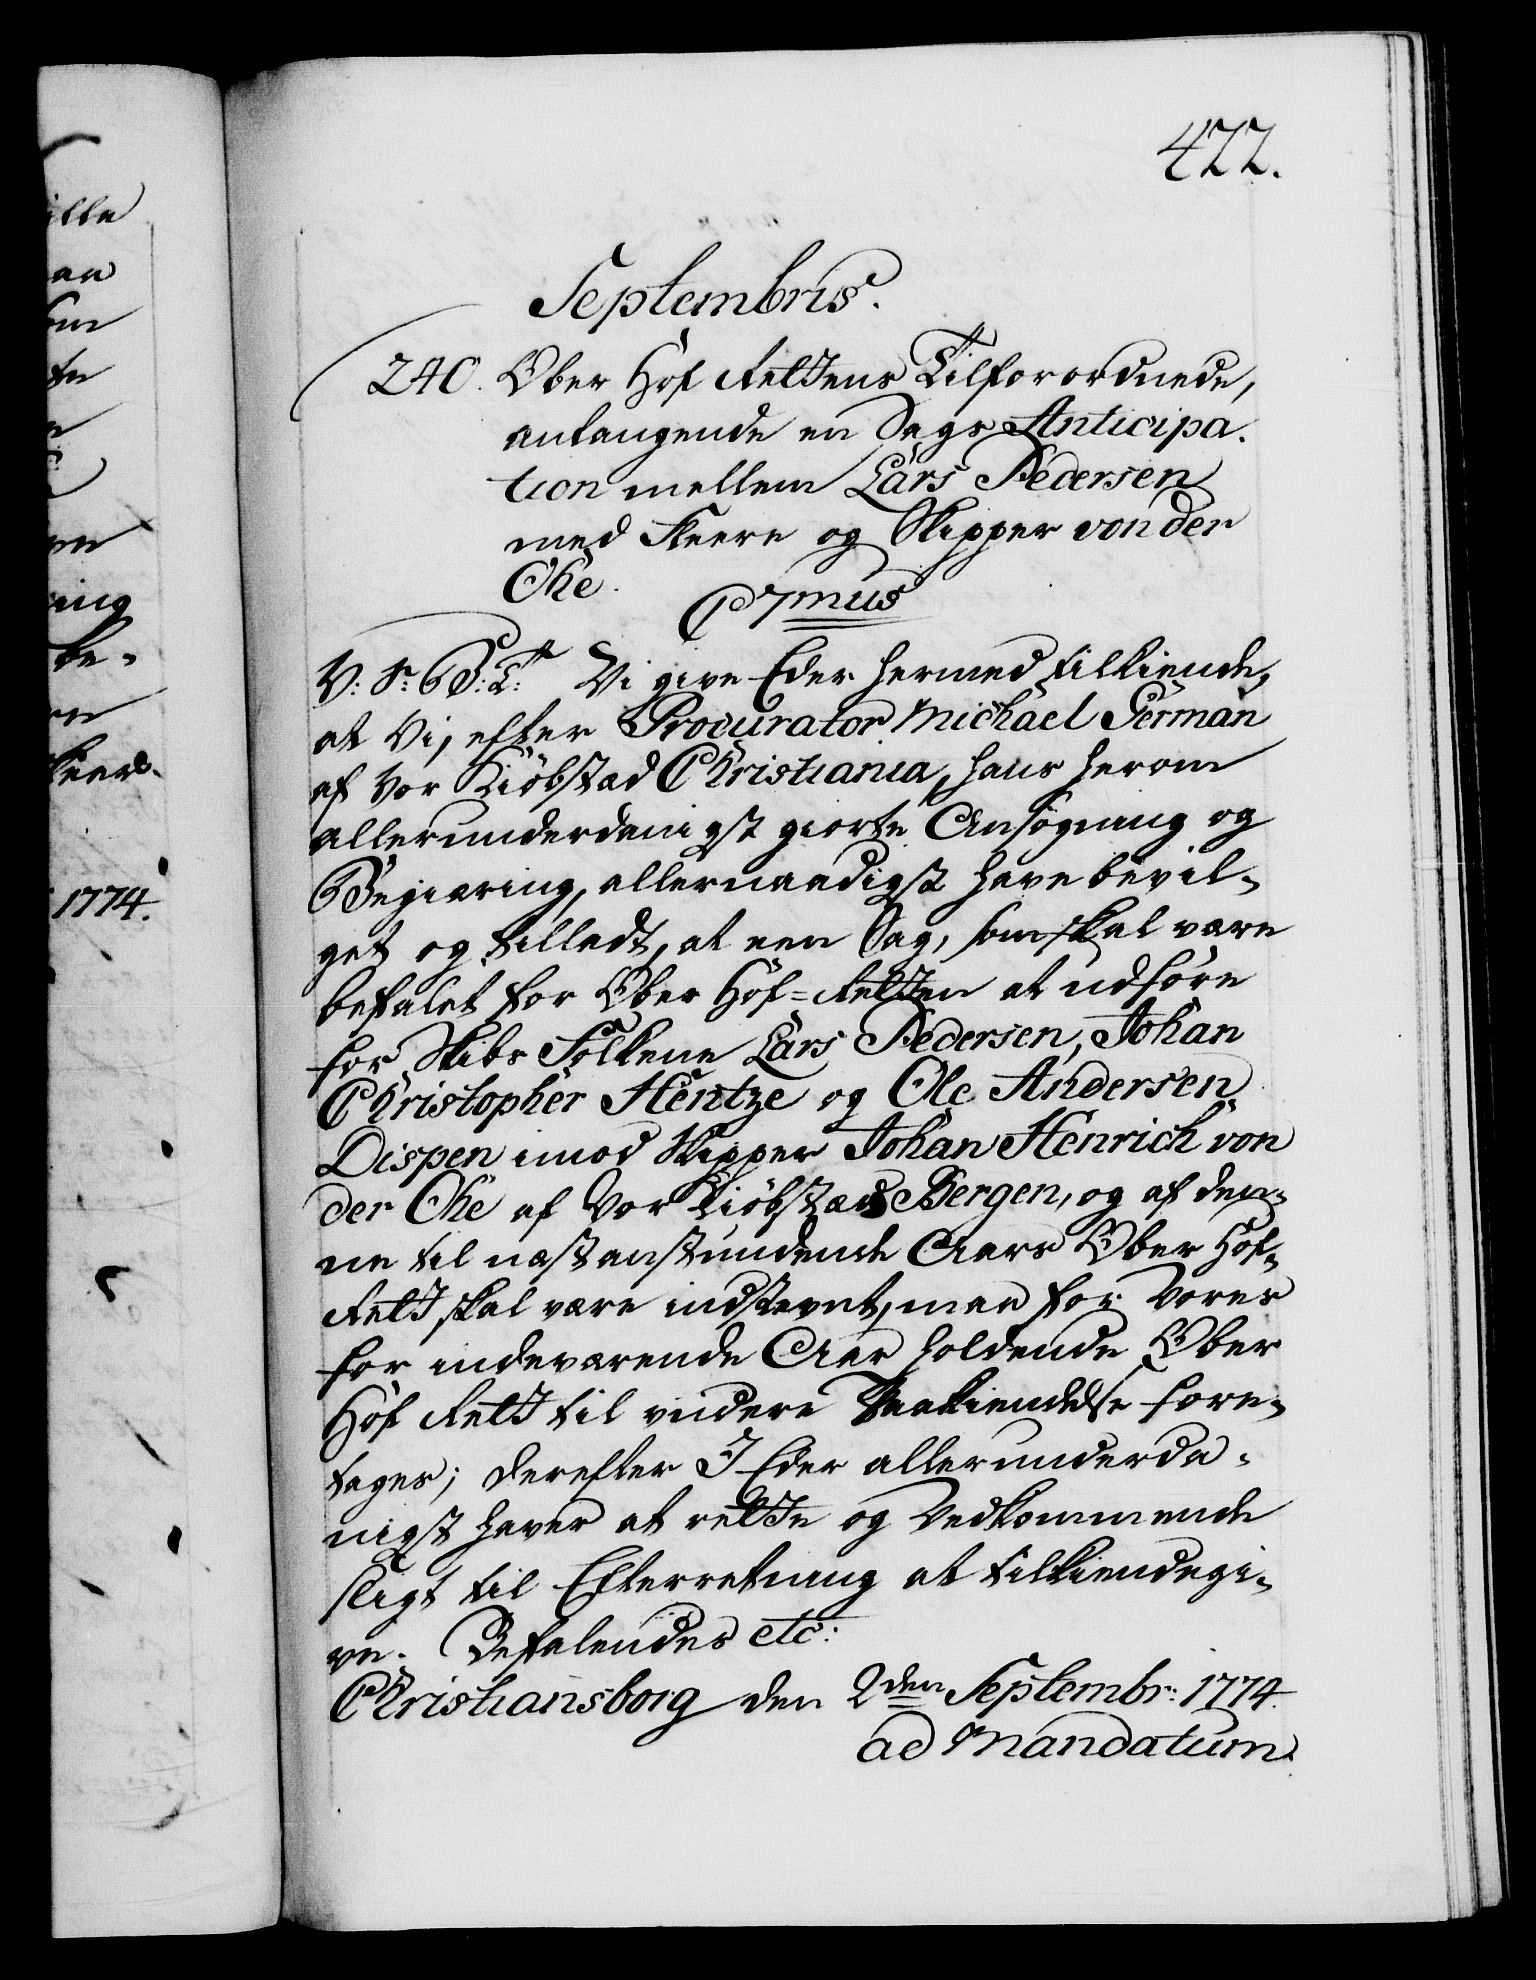 422.
Septembris.
240. Ober Hof Rettens Tilforordnede,
anlangende en Sags Anticipa-
tion mellem Lars Pedersen
med fleere og Skipper von der
Ohe.
C 7mus
V: S: G: T: Vi give Eder hermed tilkiende,
at Vi, efter Procurator Michael German
af Vor Kiöbstad Christiania, hans herom
allerunderdanigst giorte Ansögning og
Begiæring, allernaadigst have bevil-
get og tilladt, at een Sag, som skal være
befalet for Ober Hof-Retten at udföre
for Skibs Folkene Lars Pedersen, Johan
Christopher Hentze og Ole Andersen
Dispen imod Skipper Johan Henrich von
der Ohe af Vor Kiöbstad Bergen, og af den-
ne til næstanstundende Aars Ober Hof-
Rett skal være indstevnt, maa for Vores
for indeværende Aar holdende Ober
Hof Rett til videre Paakiendelse fore-
tages; derefter I Eder allerunderda-
nigst haver at rette og Vedkommende
sligt til Efterretning at tilkiendegi-
ve. Befalendes etc:
Christiansborg den 2den Septembr: 1774.
ad Mandatum.
1774.